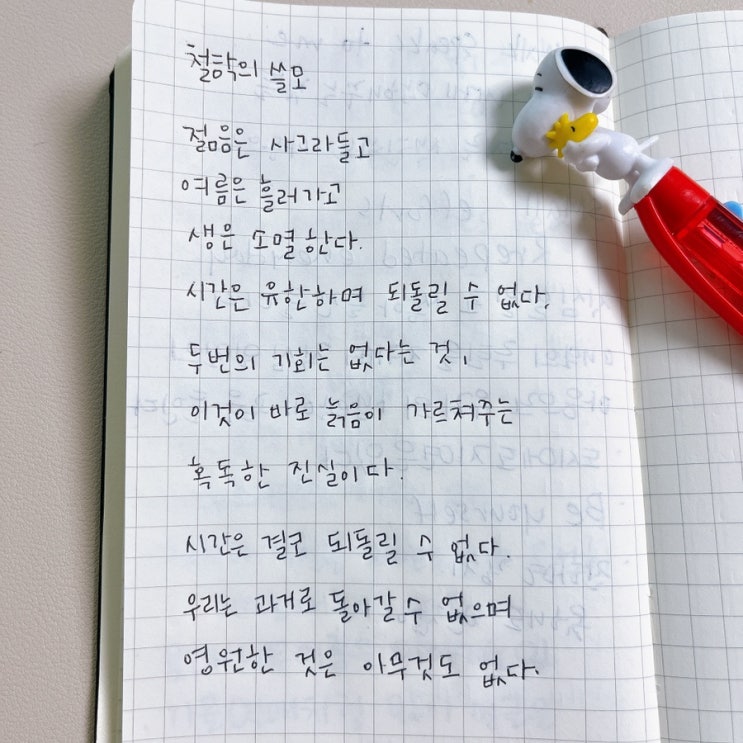 철학의 쓸모
젊음은 사그라들고
여름은 흘러가고
생은 소멸한다.
시간은 유한하며 되돌릴 수 없다.
두번의 기회는 없다는 것,
이것이 바로 늙음이 가르쳐주는
혹독한 진실이다.
시간은 결코 되돌릴 수 없다.
우리는 과거로 돌아갈 수 없으며
영원한 것은 아무것도 없다.